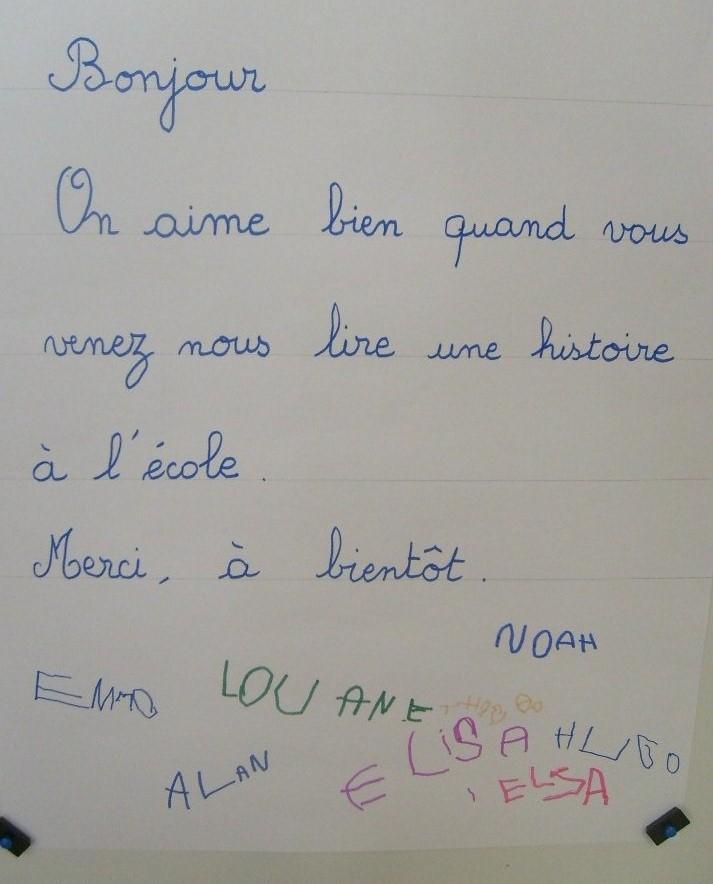 Bonjour
On aime bien quand vous
venez nous lire une histoire
à l'école.
Merci, à bientôt.
NOAH
LOUANE
ELiSA HUGO
ALAN
ELSA